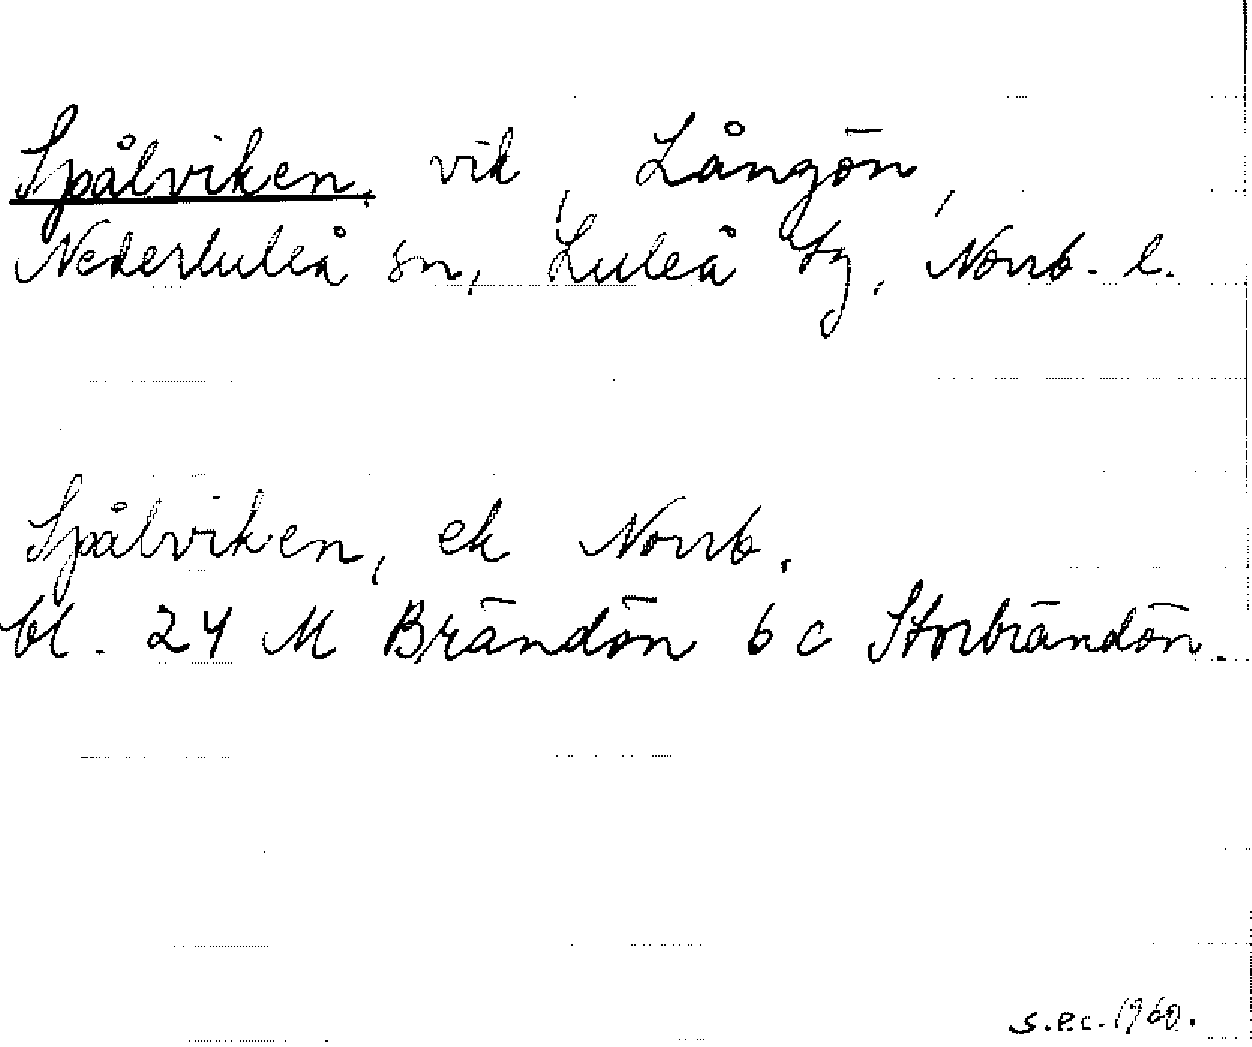 Spålviken, vik, Långön,
Nederluleå sn, Luleå tg, Norrb. l.
Spålviken, ek Norrb.
bl. 24 M Brändön 6 c Storbrändön.
s.e.c. 1960.